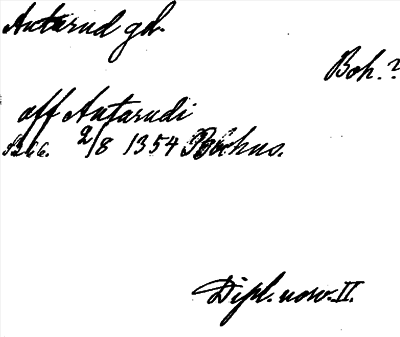 Antarud gd.
Boh.?
off Antarudi
S266. 2/8 1354 Bohus.
Dipl. norv. II.